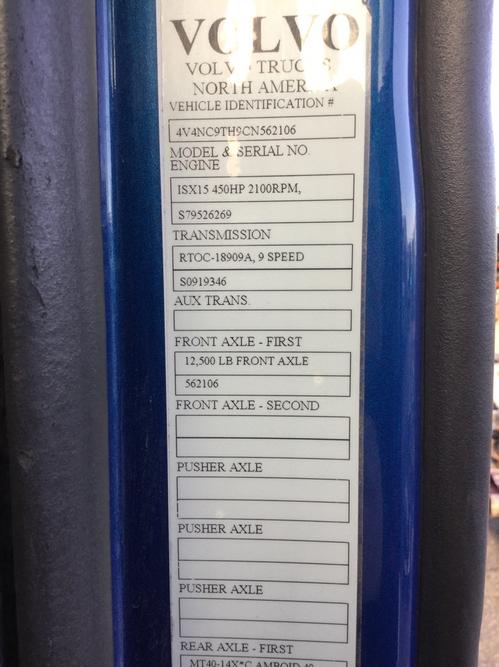 VOLVO
VOLVO TRUCKS
NORTH AMERICA
VEHICLE IDENTIFICATION #
4V4NC9TH9CN562106
MODEL & SERIAL NO.
ENGINE
ISX15 450HP 2100RPM,
S79526269
TRANSMISSION
RTOC-18909A, 9 SPEED
S0919346
AUX TRANS.
FRONT AXLE - FIRST
12,500 LB FRONT AXLE
562106
FRONT AXLE - SECOND
PUSHER AXLE
PUSHER AXLE
PUSHER AXLE
REAR AXLE - FIRST
MT40-14X*C AMBOID 40